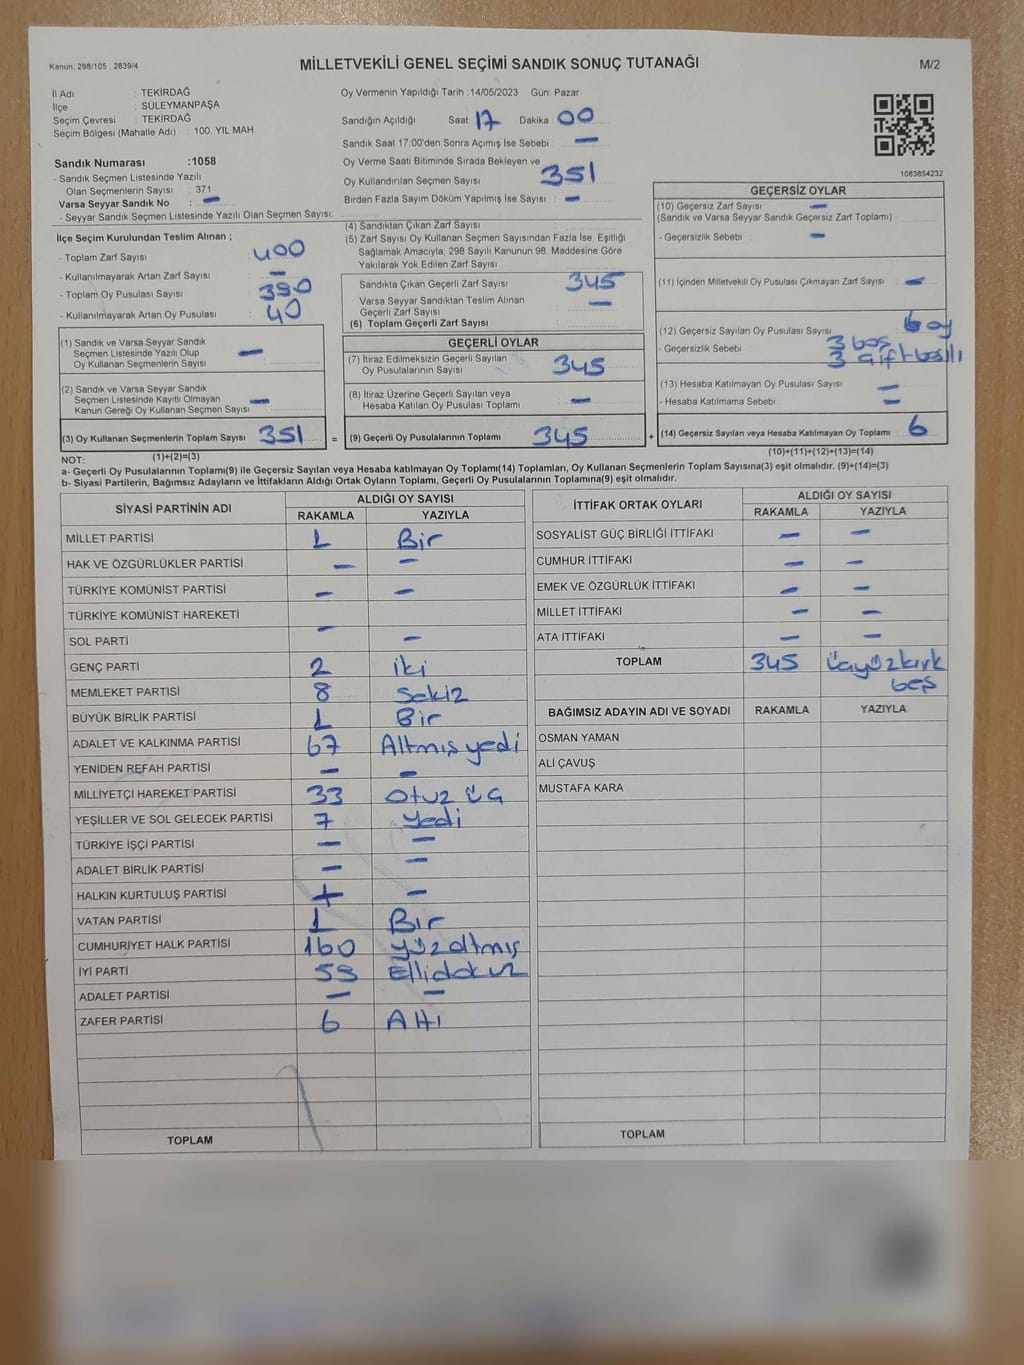 Kanun: 298/105 . 2839/4
MİLLETVEKİLİ GENEL SEÇİMİ SANDIK SONUÇ TUTANAĞI
M/2
İl Adı : TEKİRDAĞ
İlçe : SÜLEYMANPAŞA
Seçim Çevresi : TEKİRDAĞ
Seçim Bölgesi (Mahalle Adı) : 100. YIL MAH.
Sandık Numarası :1058
- Sandık Seçmen Listesinde Yazılı
Olan Seçmenlerin Sayısı : 371
Varsa Seyyar Sandık No : —
- Seyyar Sandık Seçmen Listesinde Yazılı Olan Seçmen Sayısı:
Oy Vermenin Yapıldığı Tarih :14/05/2023 Gün: Pazar
Sandığın Açıldığı Saat: 17 Dakika: 00
Sandık Saat 17:00'den Sonra Açımış İse Sebebi: —
Oy Verme Saati Bitiminde Sırada Bekleyen ve
Oy Kullandırılan Seçmen Sayısı 351
Birden Fazla Sayım Döküm Yapılmış İse Sayısı : —
1083854232
İlçe Seçim Kurulundan Teslim Alınan ;
- Toplam Zarf Sayısı : 400
- Kullanılmayarak Artan Zarf Sayısı : —
- Toplam Oy Pusulası Sayısı : 390
- Kullanılmayarak Artan Oy Pusulası : 40
(1) Sandık ve Varsa Seyyar Sandık
Seçmen Listesinde Yazılı Olup
Oy Kullanan Seçmenlerin Sayısı : —
(2) Sandık ve Varsa Seyyar Sandık
Seçmen Listesinde Kayıtlı Olmayan
Kanun Gereği Oy Kullanan Seçmen Sayısı : —
(3) Oy Kullanan Seçmenlerin Toplam Sayısı 351
(4) Sandıktan Çıkan Zarf Sayısı
(5) Zarf Sayısı Oy Kullanan Seçmen Sayısından Fazla İse, Eşitliği
Sağlamak Amacıyla, 298 Sayılı Kanunun 98. Maddesine Göre
Yakılarak Yok Edilen Zarf Sayısı
Sandıkta Çıkan Geçerli Zarf Sayısı 345
Varsa Seyyar Sandıktan Teslim Alınan
Geçerli Zarf Sayısı —
(6) Toplam Geçerli Zarf Sayısı
GEÇERLİ OYLAR
(7) İtiraz Edilmeksizin Geçerli Sayılan
Oy Pusulalarının Sayısı 345
(8) İtiraz Üzerine Geçerli Sayılan veya
Hesaba Katılan Oy Pusulası Toplamı —
= (9) Geçerli Oy Pusulalarının Toplamı 345
GEÇERSİZ OYLAR
(10) Geçersiz Zarf Sayısı —
(Sandık ve Varsa Seyyar Sandık Geçersiz Zarf Toplamı)
- Geçersizlik Sebebi : —
(11) İçinden Milletvekili Oy Pusulası Çıkmayan Zarf Sayısı —
(12) Geçersiz Sayılan Oy Pusulası Sayısı 6 oy
- Geçersizlik Sebebi : 3 boş
3 çift basılı
(13) Hesaba Katılmayan Oy Pusulası Sayısı —
- Hesaba Katılmama Sebebi : —
+ (14) Geçersiz Sayılan veya Hesaba Katılmayan Oy Toplamı 6
NOT: (1)+(2)=(3)
(10)+(11)+(12)+(13)=(14)
a- Geçerli Oy Pusulalarının Toplamı(9) ile Geçersiz Sayılan veya Hesaba katılmayan Oy Toplamı(14) Toplamları, Oy Kullanan Seçmenlerin Toplam Sayısına(3) eşit olmalıdır. (9)+(14)=(3)
b- Siyasi Partilerin, Bağımsız Adayların ve İttifakların Aldığı Ortak Oyların Toplamı, Geçerli Oy Pusulalarının Toplamına(9) eşit olmalıdır.
SİYASİ PARTİNİN ADI ALDIĞI OY SAYISI
RAKAMLA YAZIYLA
MİLLET PARTİSİ 1 Bir
HAK VE ÖZGÜRLÜKLER PARTİSİ — —
TÜRKİYE KOMÜNİST PARTİSİ — —
TÜRKİYE KOMÜNİST HAREKETİ —
SOL PARTİ —
GENÇ PARTİ 2 iki
MEMLEKET PARTİSİ 8 Sekiz
BÜYÜK BİRLİK PARTİSİ 1 Bir
ADALET VE KALKINMA PARTİSİ 67 Altmış yedi
YENİDEN REFAH PARTİSİ — —
MİLLİYETÇİ HAREKET PARTİSİ 33 Otuz üç
YEŞİLLER VE SOL GELECEK PARTİSİ 7 yedi
TÜRKİYE İŞÇİ PARTİSİ — —
ADALET BİRLİK PARTİSİ — —
HALKIN KURTULUŞ PARTİSİ —
VATAN PARTİSİ 1 Bir
CUMHURİYET HALK PARTİSİ 160 yüzaltmış
İYİ PARTİ 59 Ellidokuz
ADALET PARTİSİ — —
ZAFER PARTİSİ 6 Altı
TOPLAM
İTTİFAK ORTAK OYLARI ALDIĞI OY SAYISI
RAKAMLA YAZIYLA
SOSYALİST GÜÇ BİRLİĞİ İTTİFAKI — —
CUMHUR İTTİFAKI — —
EMEK VE ÖZGÜRLÜK İTTİFAKI — —
MİLLET İTTİFAKI — —
ATA İTTİFAKI — —
TOPLAM 345 üçyüzkırk
beş
BAĞIMSIZ ADAYIN ADI VE SOYADI RAKAMLA YAZIYLA
OSMAN YAMAN
ALİ ÇAVUŞ
MUSTAFA KARA
TOPLAM